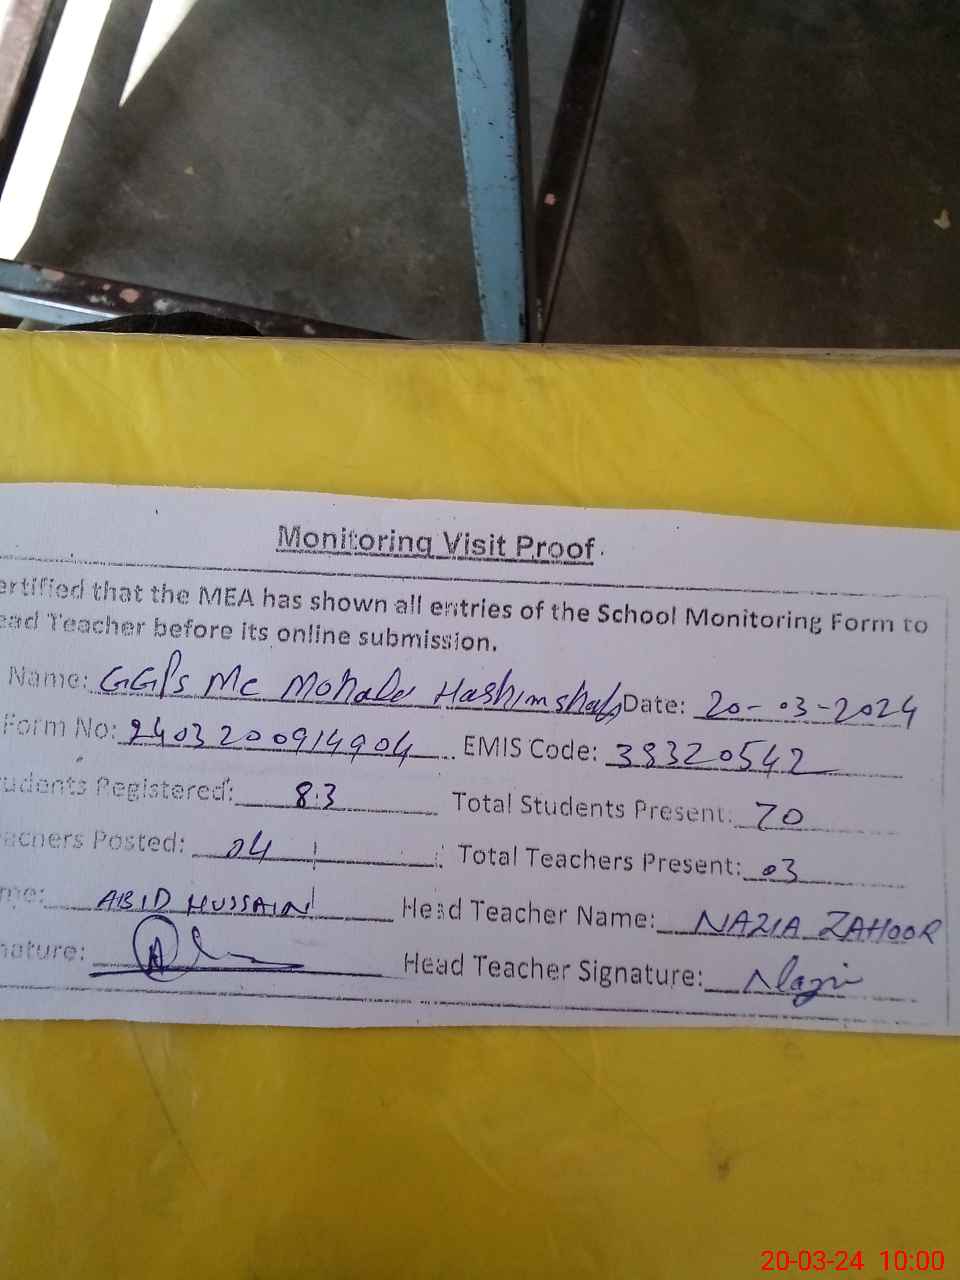 Monitoring Visit Proof.
ertified that the MEA has shown all entries of the School Monitoring Form to
ead Teacher before its online submission.
Name: GGPS MC Mohala Hashimshah Date: 20-03-2024
Form No: 2403200914904 EMIS Code: 38320542
udents Registered: 83 Total Students Present: 70
achers Posted: 04 Total Teachers Present: 03
me: ABID HUSSAIN Head Teacher Name: NAZIA ZAHOOR
nature: Head Teacher Signature: Nazia
20-03-24 10:00